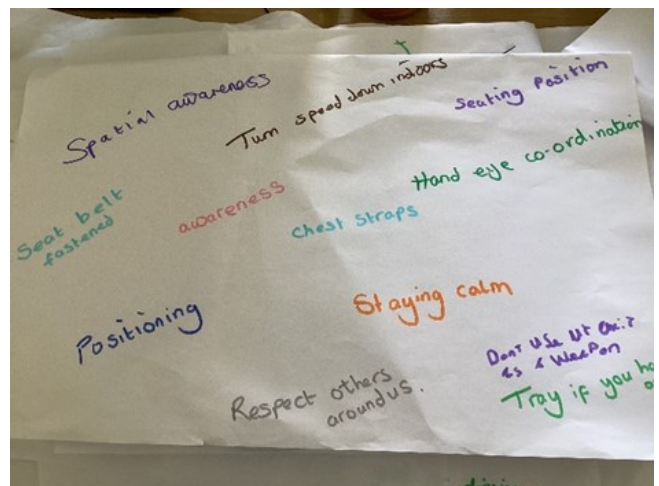 Spatial awareness
Turn speed down indoors
Seating Position
Hand eye co-ordination
Seat belt
fastened
awareness
chest straps
Positioning
Staying calm
Don't use
as a weapon
Respect others
around us.
Tray if you